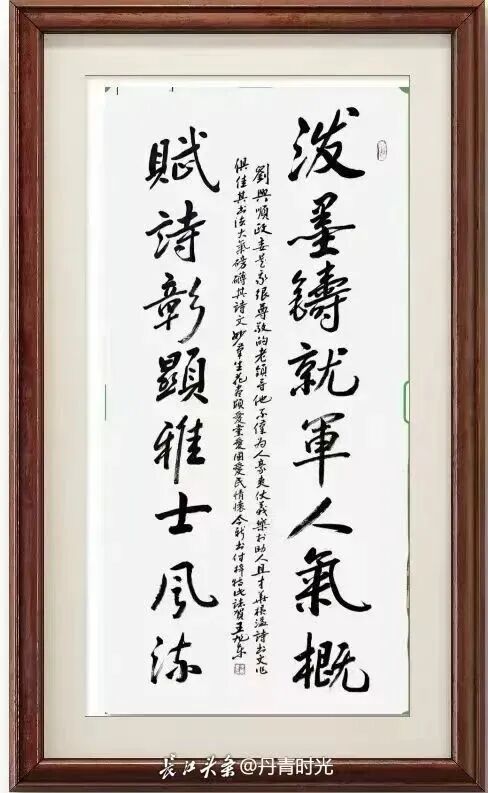 泼墨鑄就軍人氣概
劉興順政委是我很尊敬的老領導他不僅為人豪爽仗義樂於助人且才華橫溢詩书文化
俱佳其书法大氣磅礴其詩文妙筆生花頌愛黨愛國愛民情懷今新书付梓特此誌賀王東
賦詩彰顯雅士風流
长江头条@丹青时光